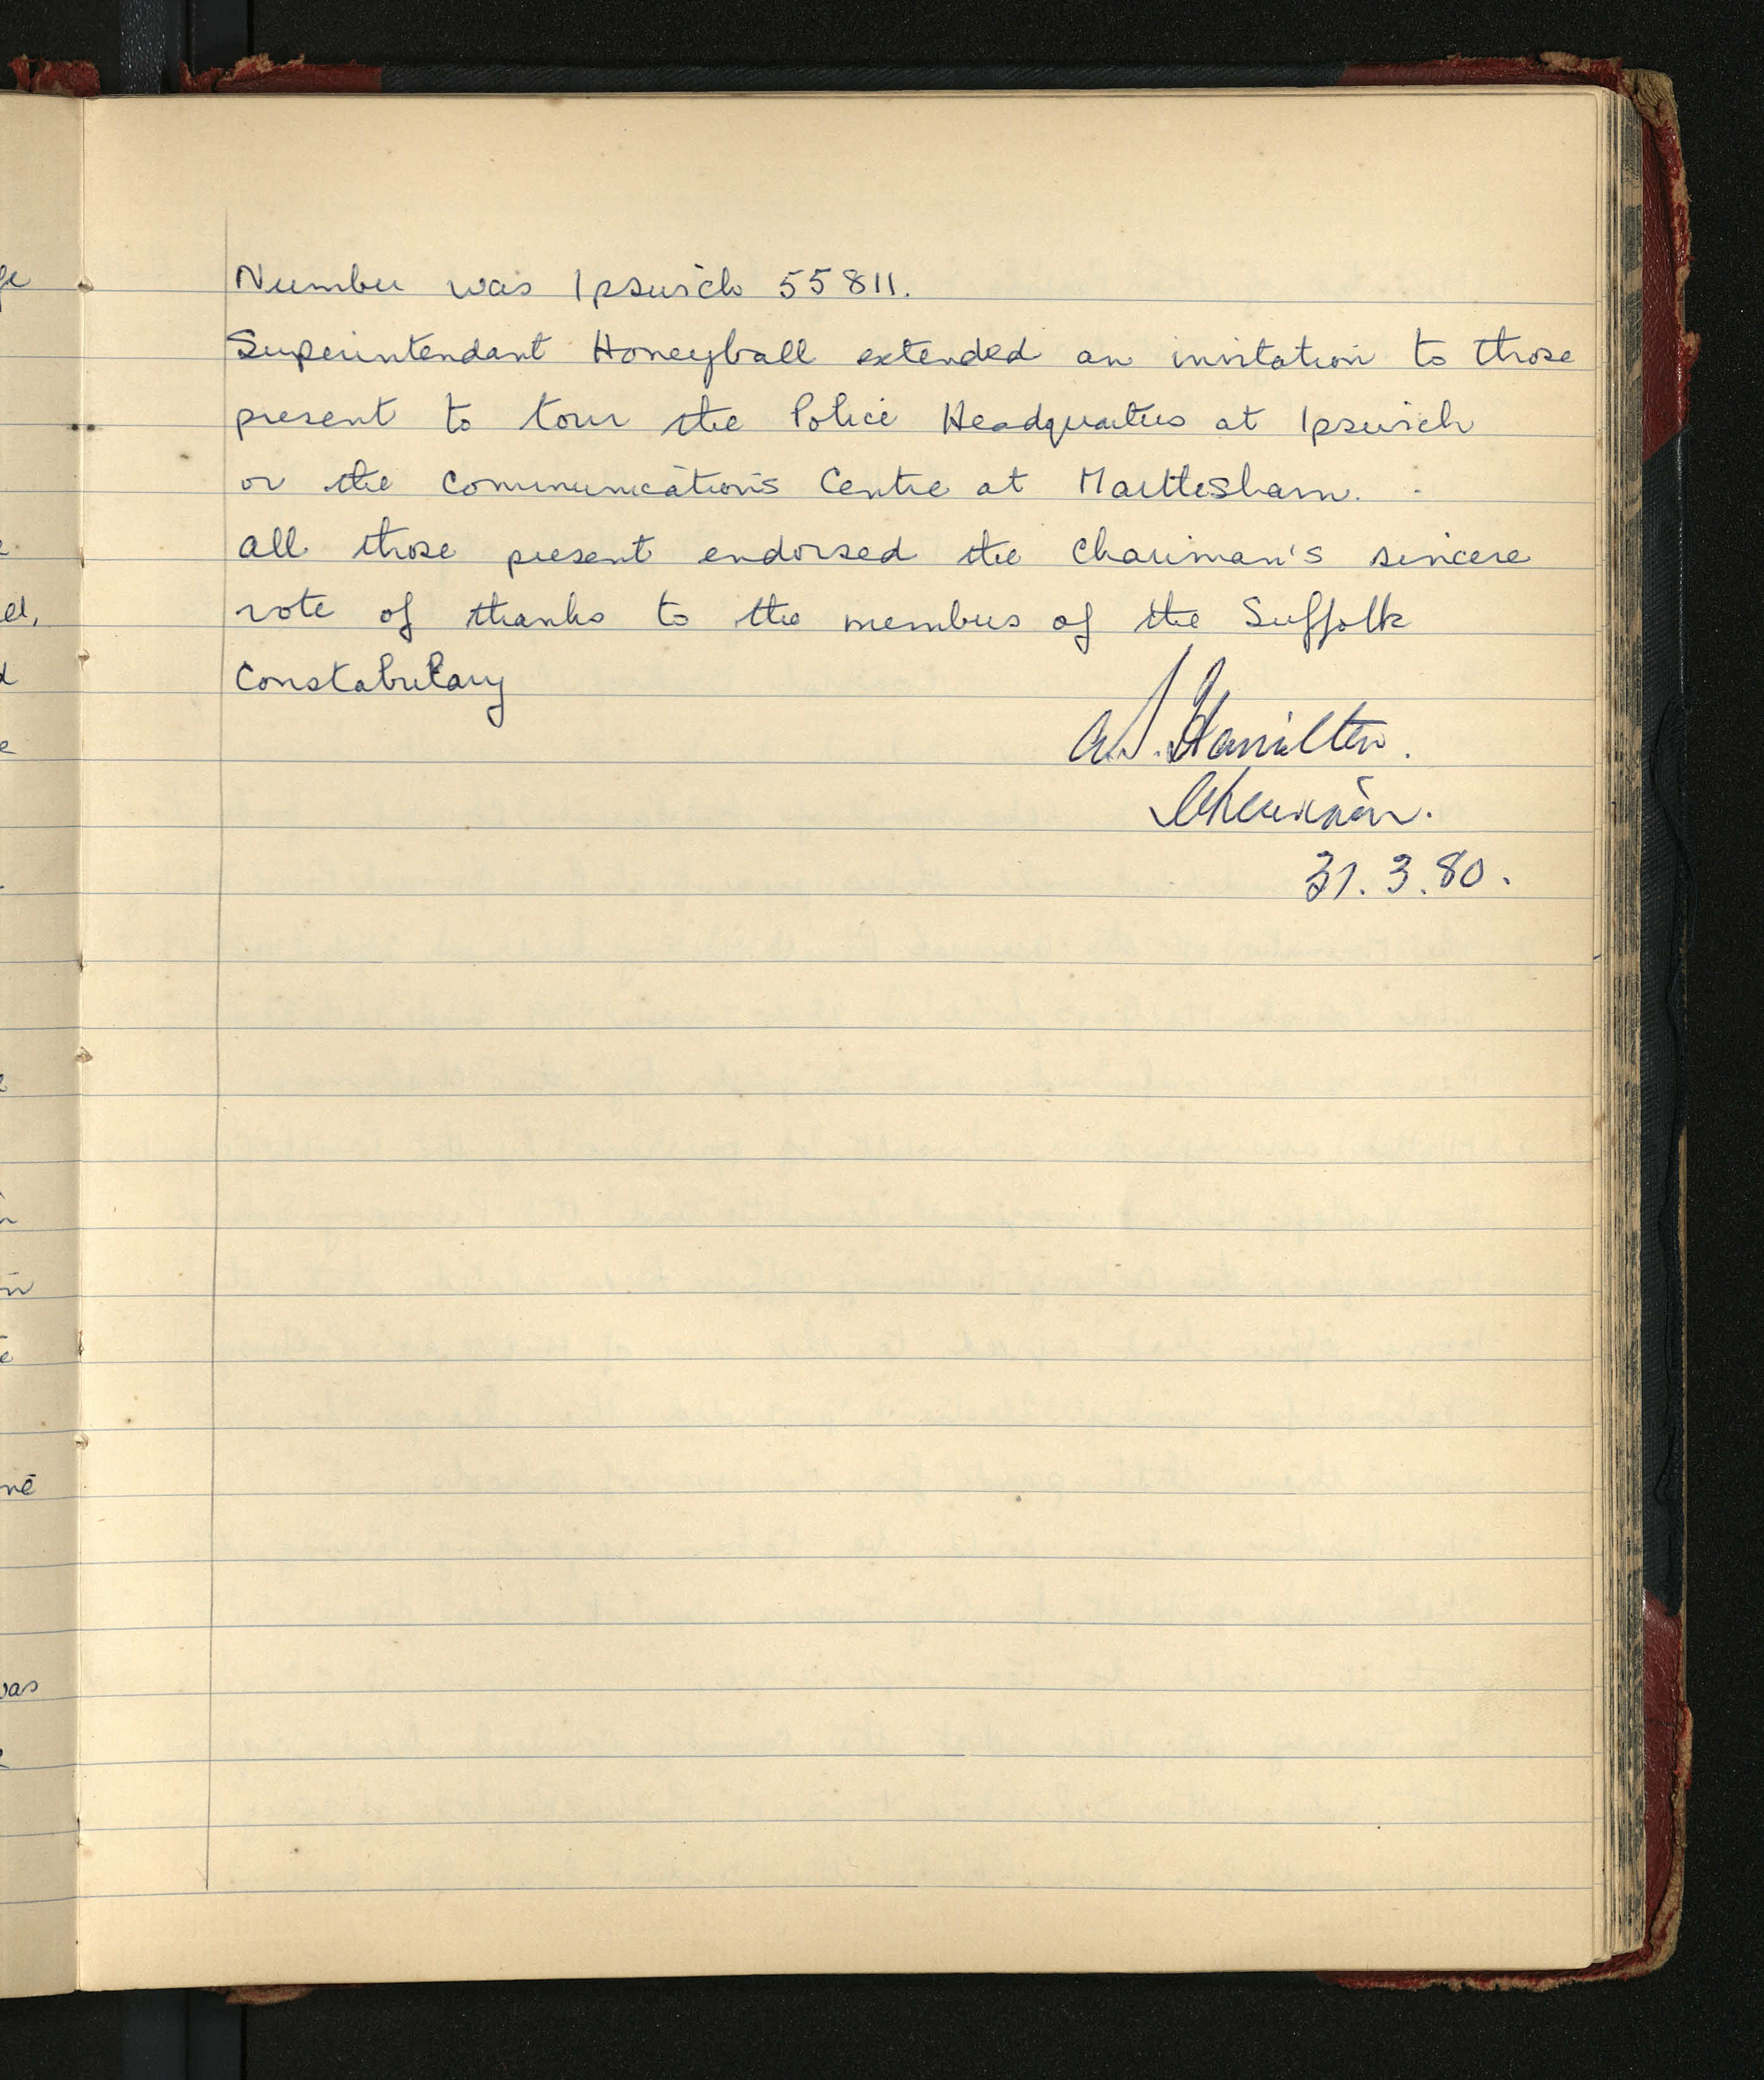 Number was Ipswich 55811.
Superintendant Honeyball extended an invitation to those
present to tour the Police Headquarters at Ipswich
or the Communications Centre at Martlesham.
All those present endorsed the Chairman's sincere
vote of thanks to the members of the Suffolk
Constabulary
Hamilton.
Chairman.
31.3.80.